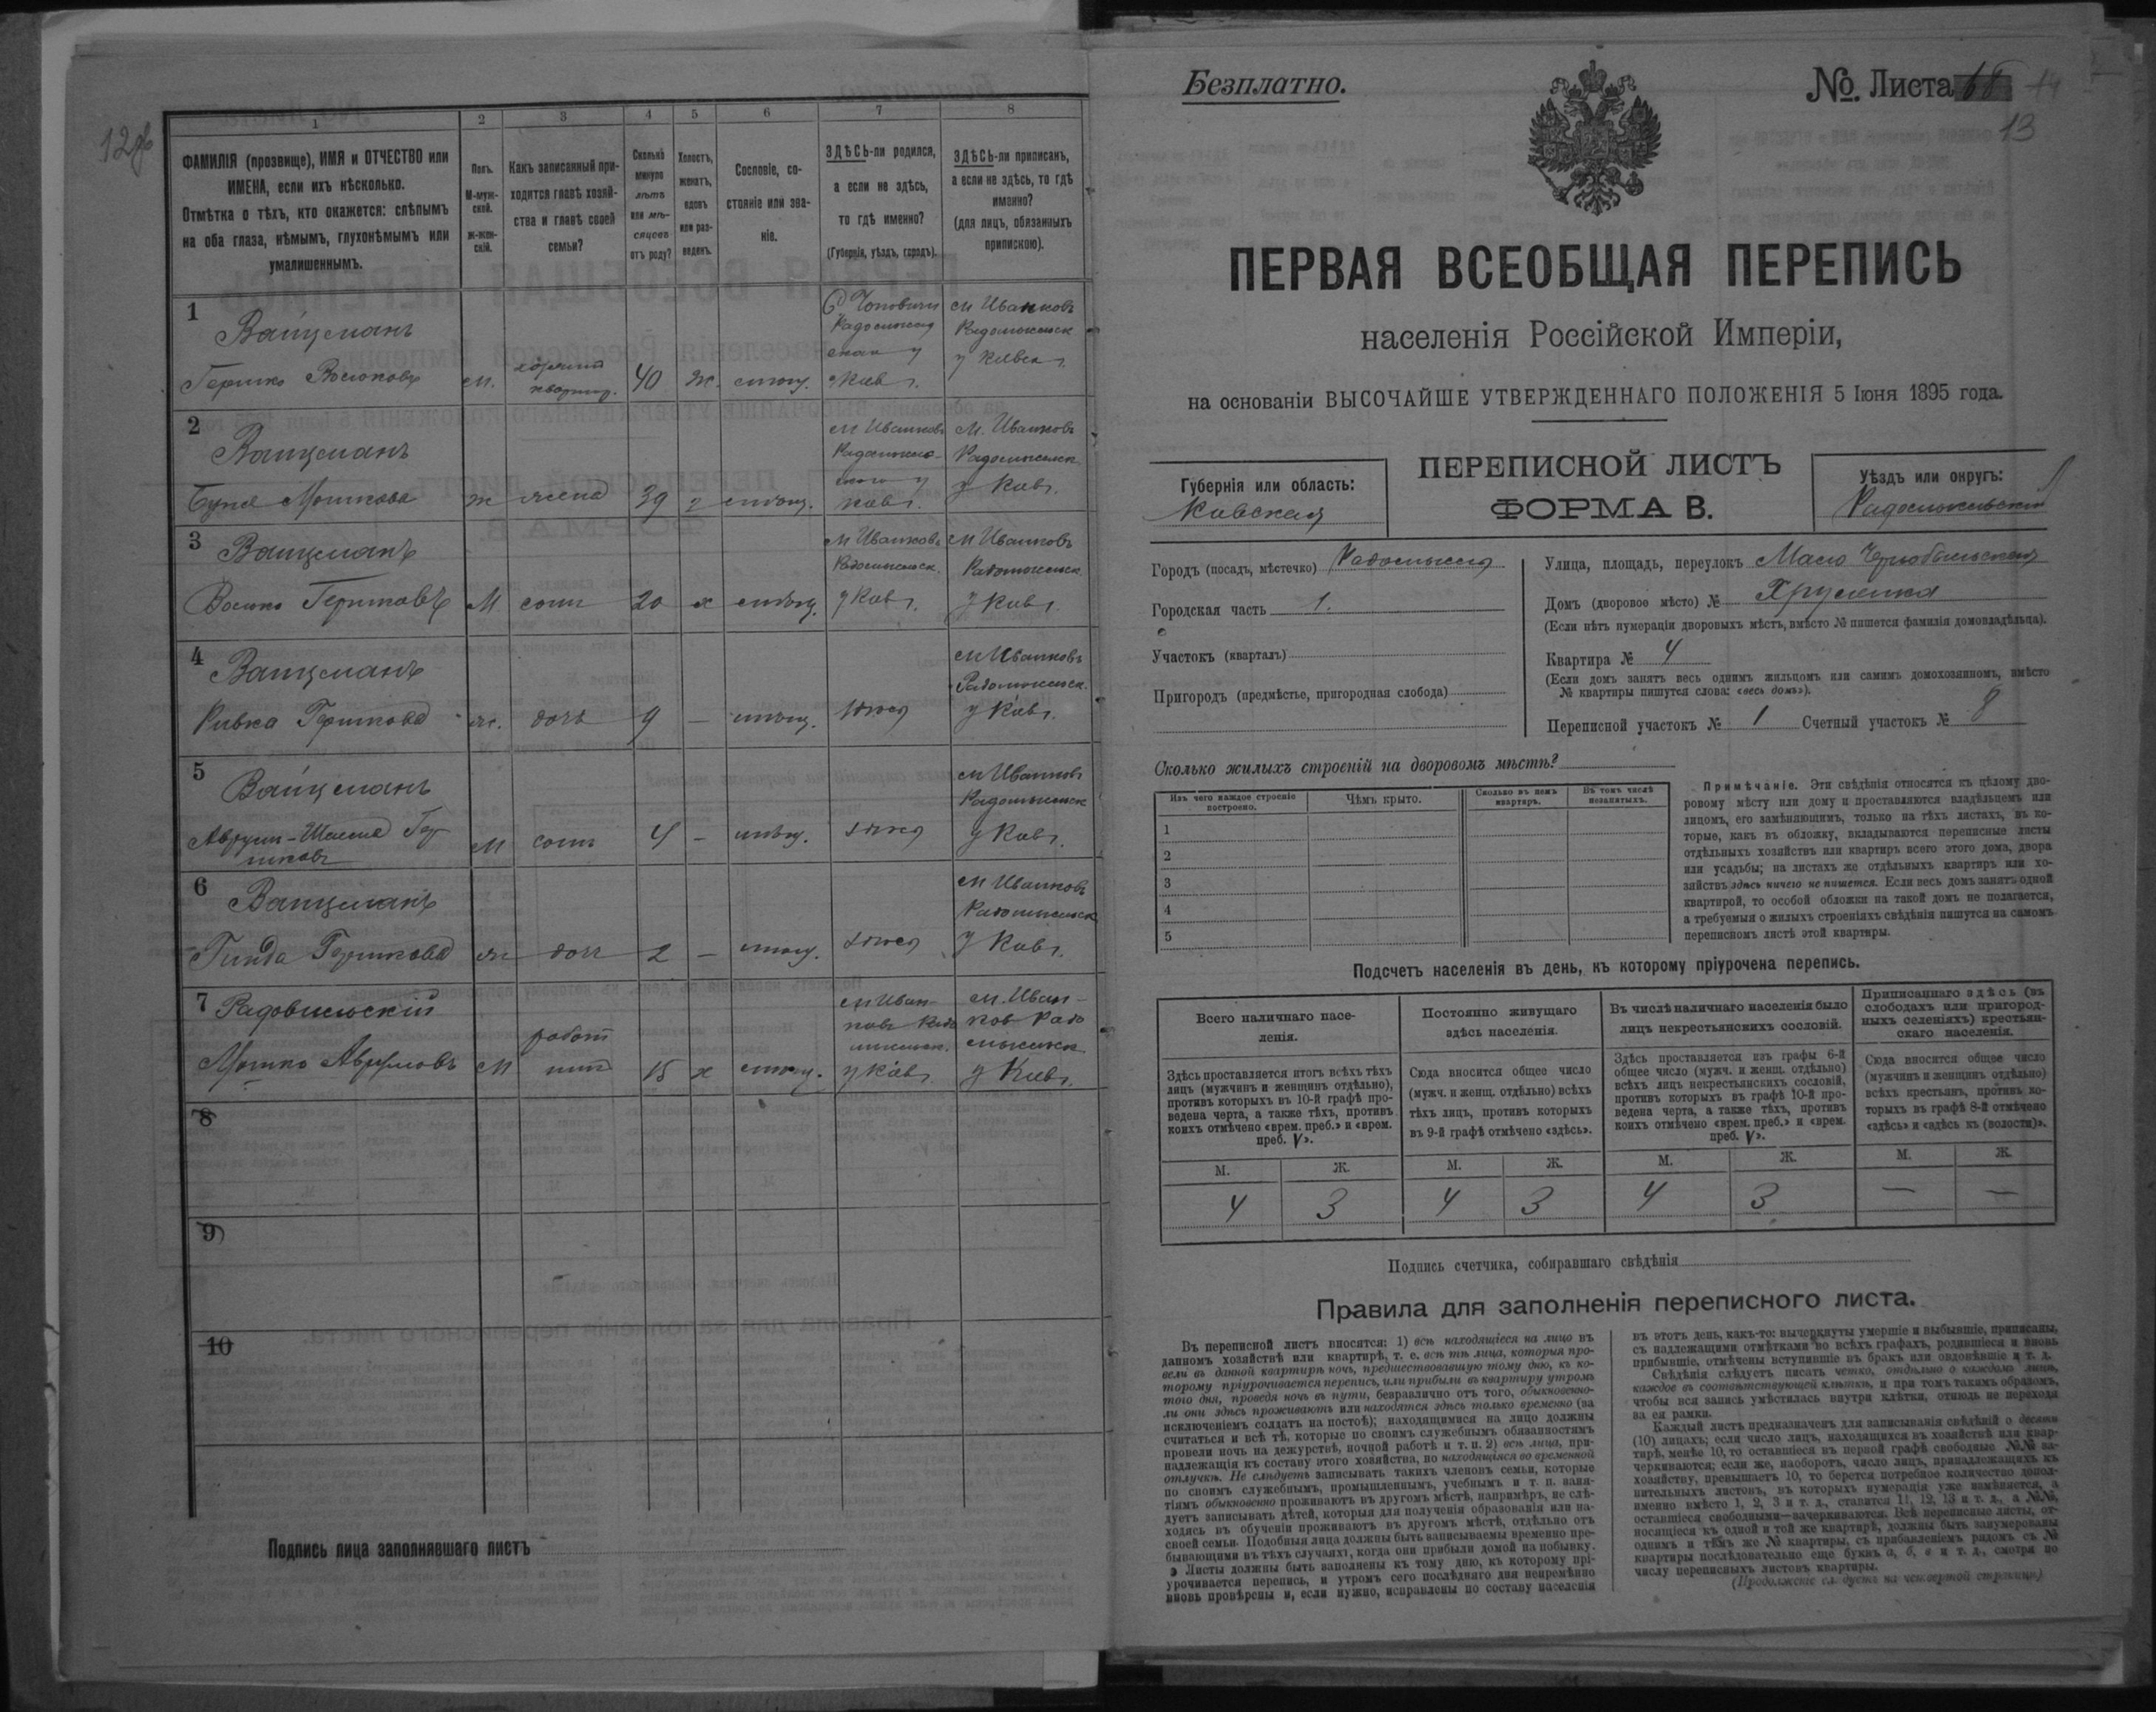 12об
1
2
3
4
5
6
7
8
ФАМИЛІЯ (прозвище), ИМЯ и ОТЧЕСТВО или
ИМЕНА, если ихъ нѣсколько.
Отмѣтка о тѣхъ, кто окажется: слѣпымъ
на оба глаза, нѣмымъ, глухонѣмымъ или
умалишеннымъ.
Полъ.
М-муж-
ской.
ж-жен-
скій.
Какъ записанный при-
ходится главѣ хозяй-
ства и главѣ своей
семьи?
Сколько
минуло
лѣтъ
или мѣ-
сяцевъ
отъ роду?
Холостъ,
женатъ,
вдовъ
или раз-
веденъ.
Сословіе, со-
стояніе или зва-
ніе.
ЗДѢСЬ-ли родился,
а если не здѣсь,
то гдѣ именно?
(Губернія, уѣздъ, городъ).
ЗДѢСЬ-ли приписанъ,
а если не здѣсь, то гдѣ
именно?
(для лицъ, обязанныхъ
припискою).
1
Вайцманъ
Гершко Воськовъ
м.
хозяинъ
квартир.
40
ж.
м Иванковъ
Радомысльск
у Киевск г.
2
Вайцманъ
Буня Мошкова
ж
жена
39
м Иванковъ
м. Иванковъ
Радомысльск
у Киев г.
3
Вайцманъ
Восько Гершковъ
М
сынъ
20
х
м Иванковъ
Радомысльск.
у Киев г.
м Иванковъ
Радомысльск.
у Киев г.
4
Вайцманъ
Ривка Гершкова
ж.
дочь
9
—
м Иванковъ
Радомысльск.
у Киев г.
5
Вайцманъ
М
сынъ
4
—
м Иванковъ
Радомысльск
у Киев г.
6
Вайцманъ
Гинда Гершкова
ж
дочь
2
—
м Иванковъ
Радомысльск
у Киев г.
7
Мошко Аврумовъ
М
15
х
м Иван-
ковъ Радо
мысльск.
у Киев г.
м. Иван-
ков Радо
мысльск
у Киев г.
8
9
10
Подпись лица заполнявшаго листъ
Безплатно.
№. Листа 68 14
13
ПЕРВАЯ ВСЕОБЩАЯ ПЕРЕПИСЬ
населенія Россійской Имперіи,
на основаніи ВЫСОЧАЙШЕ УТВЕРЖДЕННАГО ПОЛОЖЕНІЯ 5 Іюня 1895 года.
ПЕРЕПИСНОЙ ЛИСТЪ
ФОРМА В.
Губернія или область:
Киевская
Уѣздъ или округъ:
Радомысльскій
Городъ (посадъ, мѣстечко) Радомысль
Городская часть 1.
Участокъ (кварталъ)
Пригородъ (предмѣстье, пригородная слобода)
Улица, площадь, переулокъ Мало Чернобыльская
Домъ (дворовое мѣсто) №
(Если нѣтъ нумераціи дворовыхъ мѣстъ, вмѣсто № пишется фамилія домовладѣльца).
Квартира № 4
(Если домъ занятъ весь однимъ жильцомъ или самимъ домохозяиномъ, вмѣсто
№ квартиры пишутся слова: «весь домъ»).
Переписной участокъ № 1 Счетный участокъ № 8
Сколько жилыхъ строеній на дворовомъ мѣстѣ?
Изъ чего каждое строеніе
построено.
Чѣмъ крыто.
Сколько въ немъ
квартиръ.
Въ томъ числѣ
незанятыхъ.
1
2
3
4
5
Примѣчаніе. Эти свѣдѣнія относятся къ цѣлому дво-
ровому мѣсту или дому и проставляются владѣльцемъ или
лицомъ, его замѣняющимъ, только на тѣхъ листахъ, въ ко-
торые, какъ въ обложку, вкладываются переписные листы
отдѣльныхъ хозяйствъ или квартиръ всего этого дома, двора
или усадьбы; на листахъ же отдѣльныхъ квартиръ или хо-
зяйствъ здѣсь ничего не пишется. Если весь домъ занятъ одной
квартирой, то особой обложки на такой домъ не полагается,
а требуемыя о жилыхъ строеніяхъ свѣдѣнія пишутся на самомъ
переписномъ листѣ этой квартиры.
Подсчетъ населенія въ день, къ которому пріурочена перепись.
Всего наличнаго насе-
ленія.
Постоянно живущаго
здѣсь населенія.
Въ числѣ наличнаго населенія было
лицъ некрестьянскихъ сословій.
Приписаннаго здѣсь (въ
слободахъ или пригород-
ныхъ селеніяхъ) крестьян-
скаго населенія.
Здѣсь проставляется итогъ всѣхъ тѣхъ
лицъ (мужчинъ и женщинъ отдѣльно),
противъ которыхъ въ 10-й графѣ про-
ведена черта, а также тѣхъ, противъ
коихъ отмѣчено «врем. преб.» и «врем.
преб. V».
Сюда вносится общее число
(мужч. и женщ. отдѣльно) всѣхъ
тѣхъ лицъ, противъ которыхъ
въ 9-й графѣ отмѣчено «здѣсь».
Здѣсь проставляется изъ графы 6-й
общее число (мужч. и женщ. отдѣльно)
всѣхъ лицъ некрестьянскихъ сословій,
противъ которыхъ въ графѣ 10-й про-
ведена черта, а также тѣхъ, противъ
коихъ отмѣчено «врем. преб.» и «врем.
преб. V».
Сюда вносится общее число
(мужчинъ и женщинъ отдѣльно)
всѣхъ крестьянъ, противъ ко-
торыхъ въ графѣ 8-й отмѣчено
«здѣсь» и «здѣсь къ (волости)».
М. Ж. М. Ж. М. Ж. М. Ж.
4 3 4 3 4 3 — —
Подпись счетчика, собиравшаго свѣдѣнія
Правила для заполненія переписного листа.
Въ переписной листъ вносятся: 1) всѣ находящіеся на лицо въ
данномъ хозяйствѣ или квартирѣ, т. е. всѣ тѣ лица, которыя про-
вели въ данной квартирѣ ночь, предшествовавшую тому дню, къ ко-
торому пріурочивается перепись, или прибыли въ квартиру утромъ
того дня, проведя ночь въ пути, безразлично отъ того, обыкновенно-
ли они здѣсь проживаютъ или находятся здѣсь только временно (за
исключеніемъ солдатъ на постоѣ); находящимися на лицо должны
считаться и всѣ тѣ, которые по своимъ служебнымъ обязанностямъ
провели ночь на дежурствѣ, ночной работѣ и т. п. 2) всѣ лица, при-
надлежащія къ составу этого хозяйства, но находящіяся во временной
отлучкѣ. Не слѣдуетъ записывать такихъ членовъ семьи, которые
по своимъ служебнымъ, промышленнымъ, учебнымъ и т. п. заня-
тіямъ обыкновенно проживаютъ въ другомъ мѣстѣ, напримѣръ, не слѣ-
дуетъ записывать дѣтей, которыя для полученія образованія или на-
ходясь въ обученіи проживаютъ въ другомъ мѣстѣ, отдѣльно отъ
своей семьи. Подобныя лица должны быть записываемы временно пре-
бывающими въ тѣхъ случаяхъ, когда они прибыли домой на побывку.
Листы должны быть заполнены къ тому дню, къ которому прі-
урочивается перепись, и утромъ сего послѣдняго дня непремѣнно
вновь провѣрены и, если нужно, исправлены по составу населенія
въ этотъ день, какъ-то: вычеркнуты умершіе и выбывшіе, приписаны,
съ надлежащими отмѣтками во всѣхъ графахъ, родившіеся и вновь
прибывшіе, отмѣчены вступившіе въ бракъ или овдовѣвшіе и т. д.
Свѣдѣнія слѣдуетъ писать четко, отдѣльно о каждомъ лицѣ,
каждое въ соотвѣтствующей клѣткѣ, и при томъ такимъ образомъ,
чтобы вся запись умѣстилась внутри клѣтки, отнюдь не переходя
за ея рамки.
Каждый листъ предназначенъ для записыванія свѣдѣній о десяти
(10) лицахъ; если число лицъ, находящихся въ хозяйствѣ или квар-
тирѣ, менѣе 10, то оставшіеся въ первой графѣ свободные №№ за-
черкиваются; если же, наоборотъ, число лицъ, принадлежащихъ къ
хозяйству, превышаетъ 10, то берется потребное количество допол-
нительныхъ листовъ, въ которыхъ нумерація уже измѣняется, а
именно вмѣсто 1, 2, 3 и т. д., ставится 11, 12, 13 и т. д., а №№,
оставшіеся свободными—зачеркиваются. Всѣ переписные листы, от-
носящіеся къ одной и той же квартирѣ, должны быть занумерованы
однимъ и тѣмъ же № квартиры, съ прибавленіемъ рядомъ съ №
квартиры послѣдовательно еще буквъ а, б, в и т. д., смотря по
числу переписныхъ листовъ квартиры.
(Продолженіе слѣдуетъ на четвертой страницѣ)